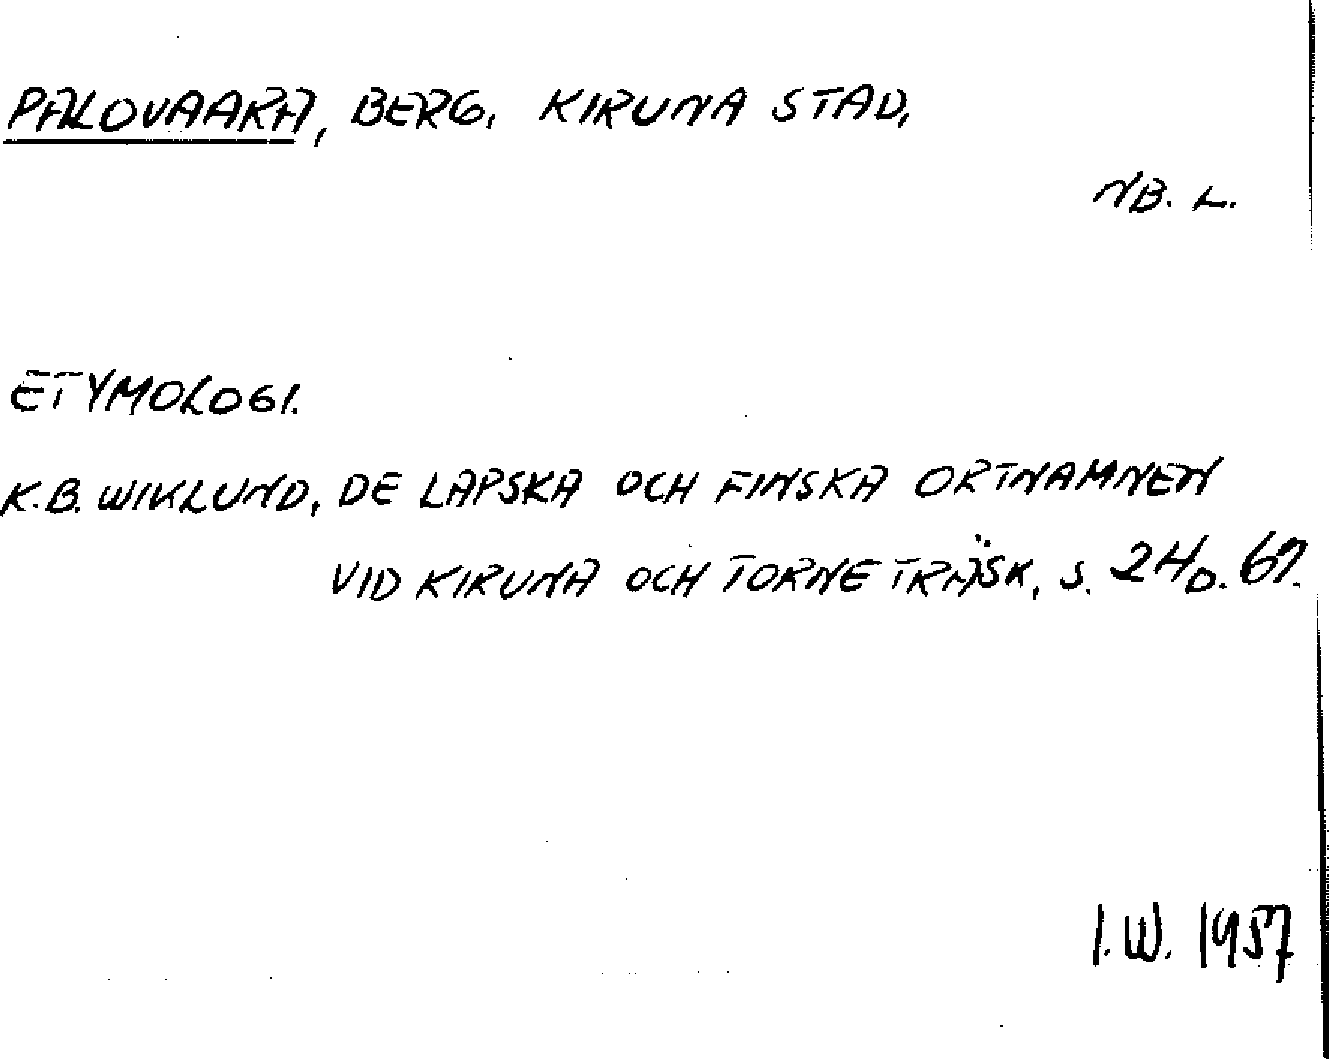 PALOVAARA, BERG, KIRUNA STAD,
NB. L.
ETYMOLOGI.
K.B. WIKLUND, DE LAPSKA OCH FINSKA ORTNAMNEN
VID KIRUNA OCH TORNE TRÄSK, S. 24 o. 67.
I.W. 1957